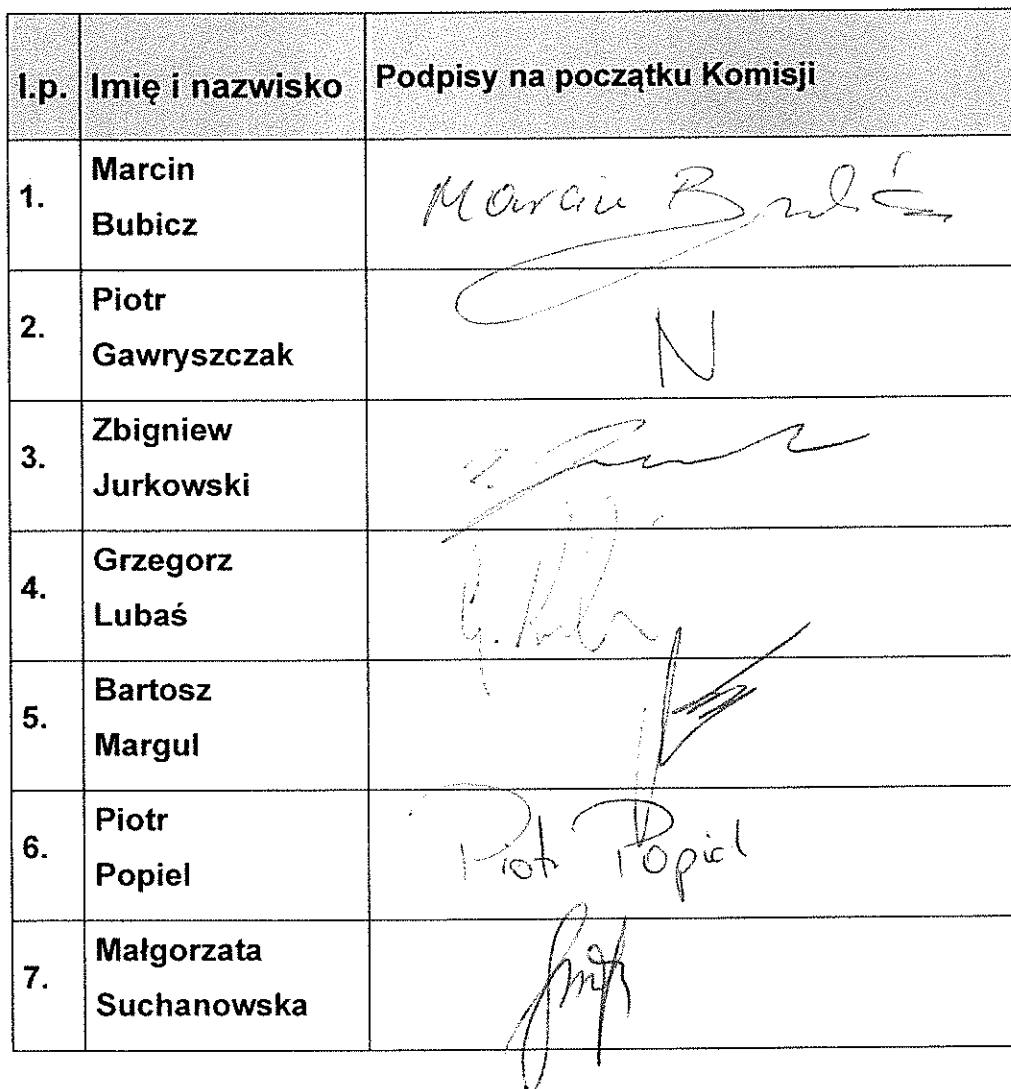 l.p. Imię i nazwisko Podpisy na początku Komisji
1. Marcin
Bubicz
Marcin Bubicz
2. Piotr
Gawryszczak
N
3. Zbigniew
Jurkowski
4. Grzegorz
Lubaś
5. Bartosz
Margul
6. Piotr
Popiel
Piotr Popiel
7. Małgorzata
Suchanowska